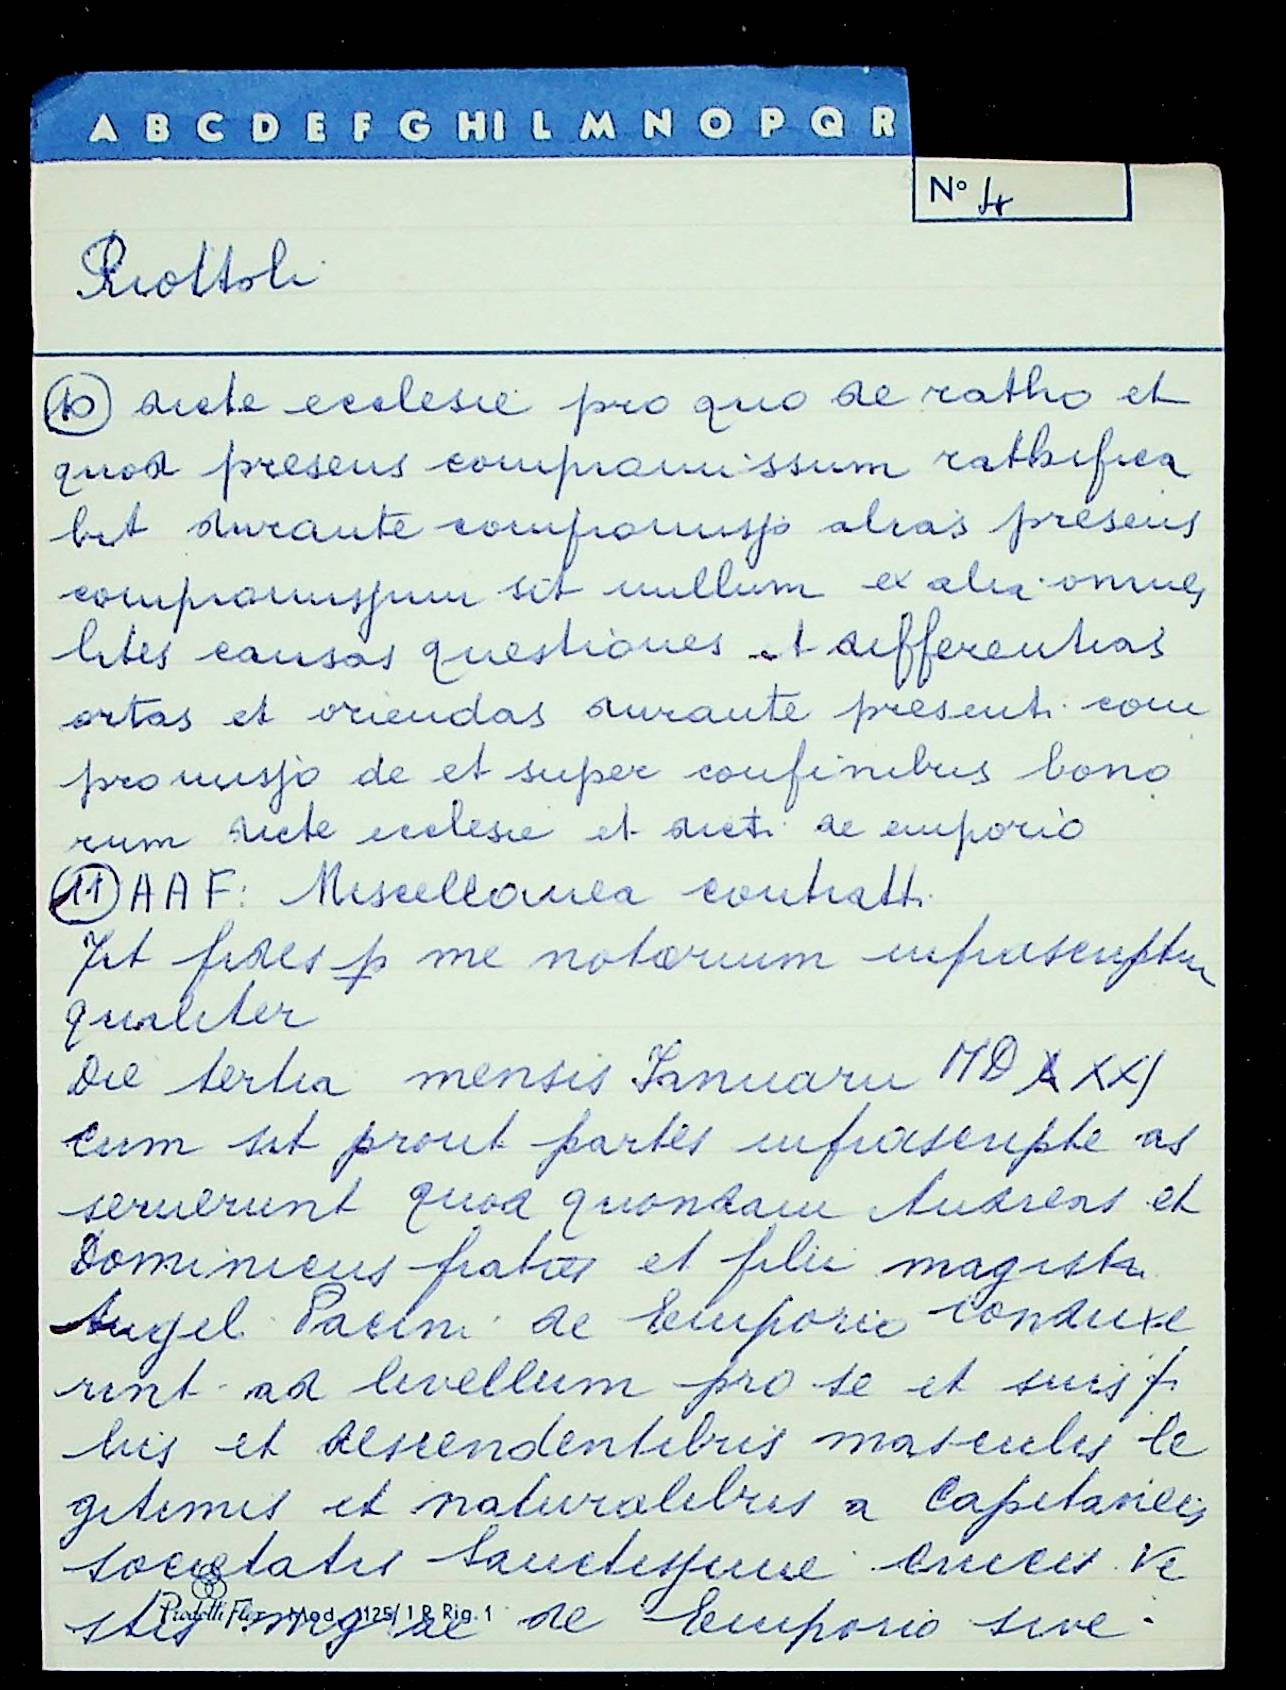 A B C D E F G HI L M N O P Q R
N° 4
Riottoli
10 dicte ecclesie pro quo de ratho et
quod presens compromissum rathifica
bit durante compromisso alias presens
compromissum sit nullum ex alia omnes
lites causas questiones et differentias
ortas et oriendas durante presenti com
promisso de et super confinibus bono
rum dicte ecclesie et dicti de emporio
11 AAF: Miscellanea contratti
Fit fides p me notarium infrascriptum
qualiter
Die tertia mensis Januarii MDXXXJ
cum sit prout partes infrascripte as
seruerunt quod quondam Andreas et
Dominicus fratres et filii magistri
Angeli Pacini de Emporio conduxe
rint ad livellum pro se et suis fi
liis et descendentibus masculis le
gitimis et naturalibus a Capitaneis
societatis Sanctissime crucis Ve
stis nigrae de Emporio sive
Prodotti Flex Mod. 125/1 R Rig. 1